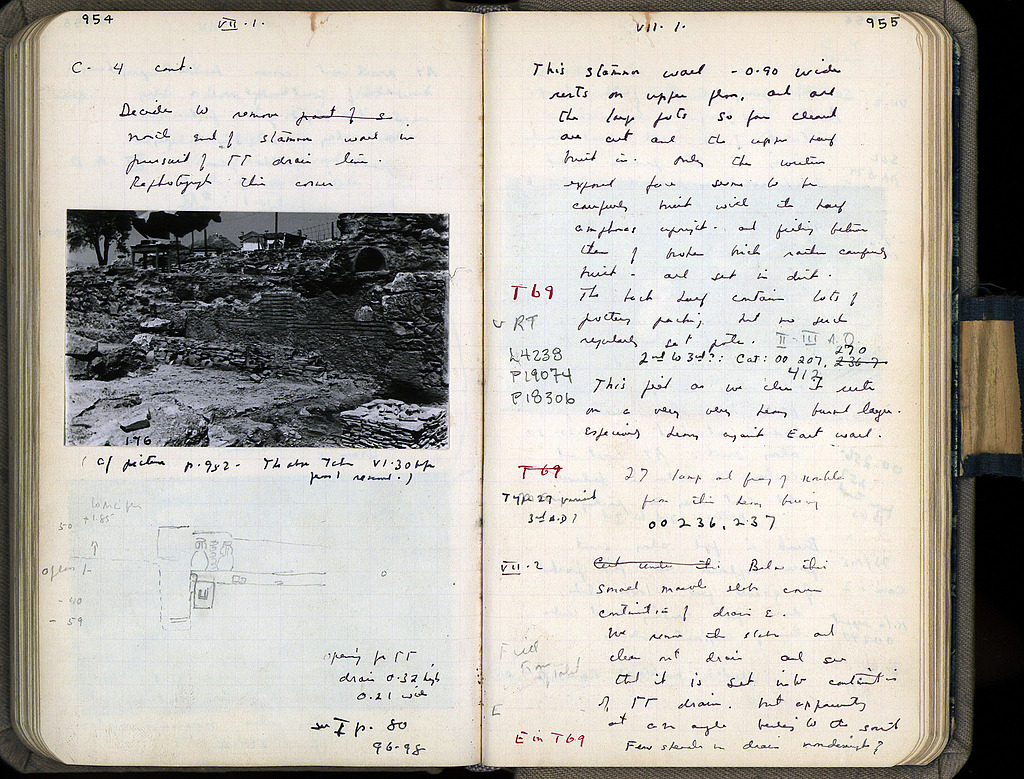 954
VII · 1 ·
C - 4 cont.
Decide to remove part of s
north end of stamnos wall in
pursuit of TT drain line.
Rephotograph this corner
176
(cf picture p. 932 -
lower fl.
+1.85
50
- 40
- 59
opening for TT
drain 0.32 high
0.21 wide
see I p. 80
96-98
955
VII · 1 ·
This stamnos wall - 0.90 wide
rests on upper floor, and
the large pots so far cleared
are cut and the upper half
built in. Only the
exposed face seems to be
carefully built with the half
amphoras upright - and between
them of broken brick rather carefully
built - and set in dirt.
T 69
The back half contains lots of
RT
pottery packing, but no such
regularly set pots. II - III A.D.
L4238
2nd to 3rd?: Cat: 00 207, 236-7 270
412
P19074
This
P18306
on a very very heavy burned layer.
Especially heavy against East wall.
T 69
27 lamp
Type 27 variant
from this heavy
3rd A.D?
00 236, 237
VII · 2
Cut under this Below this
small marble slab
continuation of drain E.
We remove the slabs and
clean out drain and see
that it is set into continuation
of TT drain, but apparently
at an angle to the south
E
E in T69
Few sherds in drain